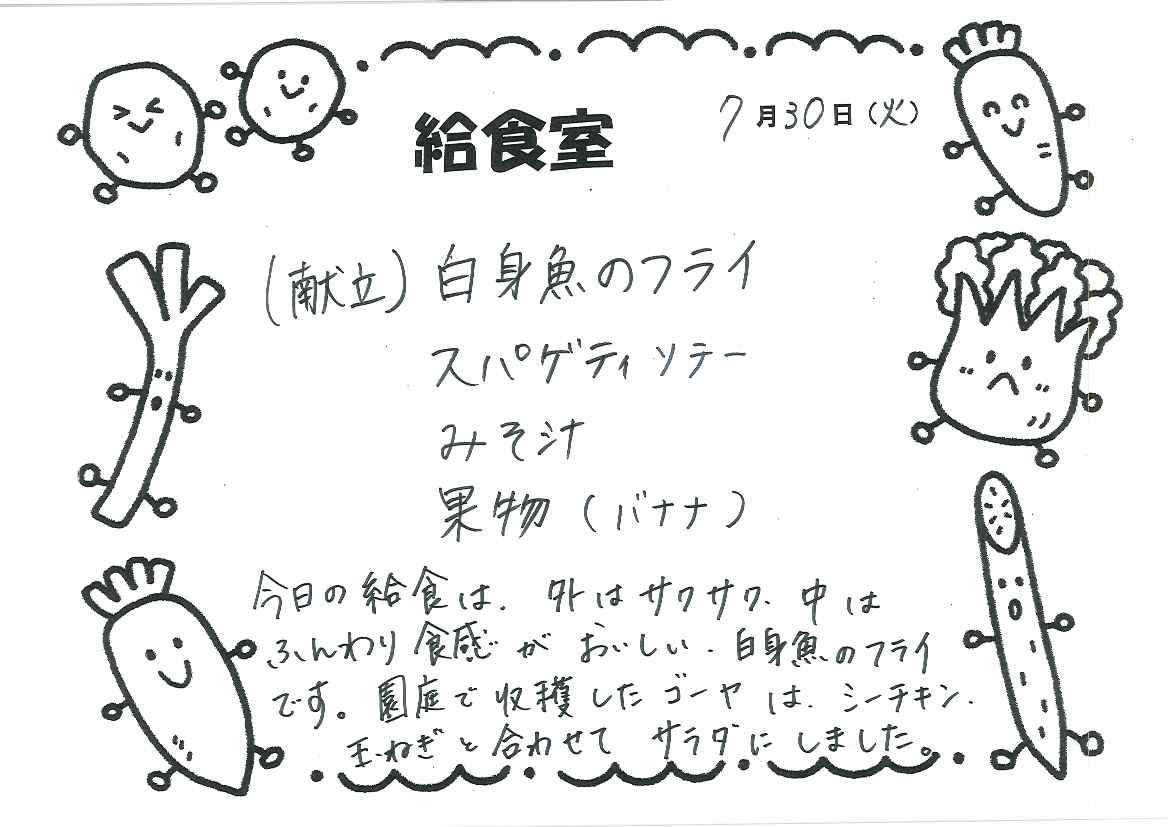 給食室
7月30日（火）
（献立）白身魚のフライ
スパゲティソテー
みそ汁
果物（バナナ）
今日の給食は、外はサクサク、中は
ふんわり食感がおいしい、白身魚のフライ
です。園庭で収穫したゴーヤは、シーチキン、
玉ねぎと合わせてサラダにしました。